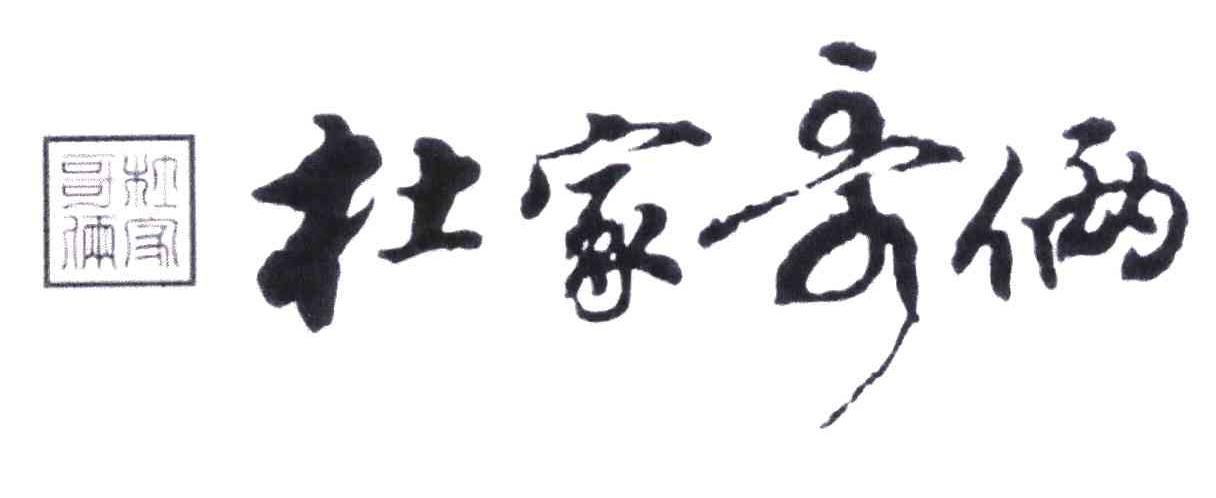 杜家哥俩
杜家哥俩